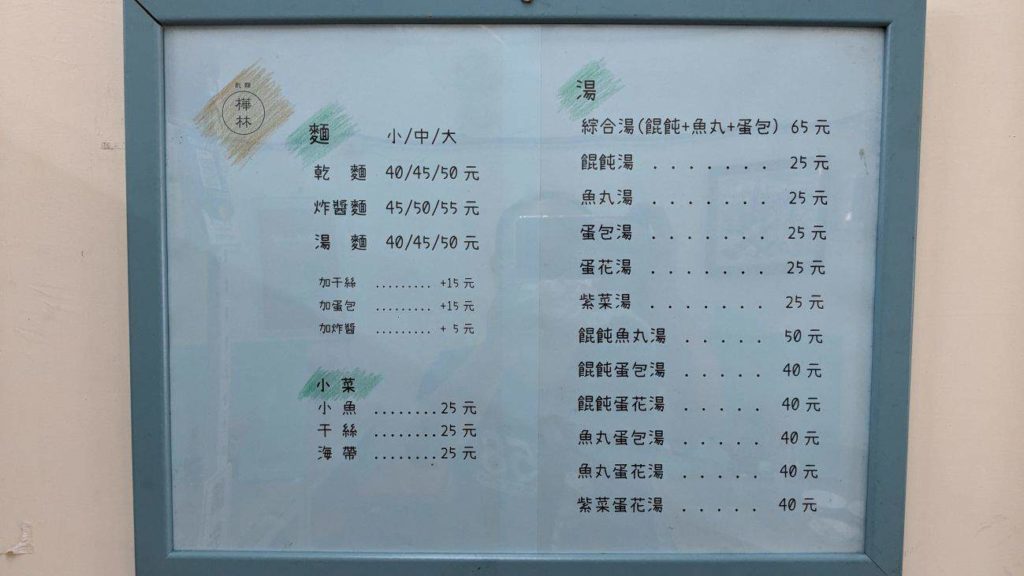 乾麵
樺林
麵 小/中/大
乾 麵 40/45/50 元
炸醬麵 45/50/55 元
湯 麵 40/45/50 元
加干絲 ......... +15 元
加蛋包 ......... +15 元
加炸醬 ......... + 5 元
小菜
小魚 ........25 元
干絲 ........25 元
海帶 ........25 元
湯
綜合湯(餛飩+魚丸+蛋包) 65 元
餛飩湯 ....... 25 元
魚丸湯 ....... 25 元
蛋包湯 ....... 25 元
蛋花湯 ....... 25 元
紫菜湯 ....... 25 元
餛飩魚丸湯 ..... 50 元
餛飩蛋包湯 ..... 40 元
餛飩蛋花湯 ..... 40 元
魚丸蛋包湯 ..... 40 元
魚丸蛋花湯 ..... 40 元
紫菜蛋花湯 ..... 40 元